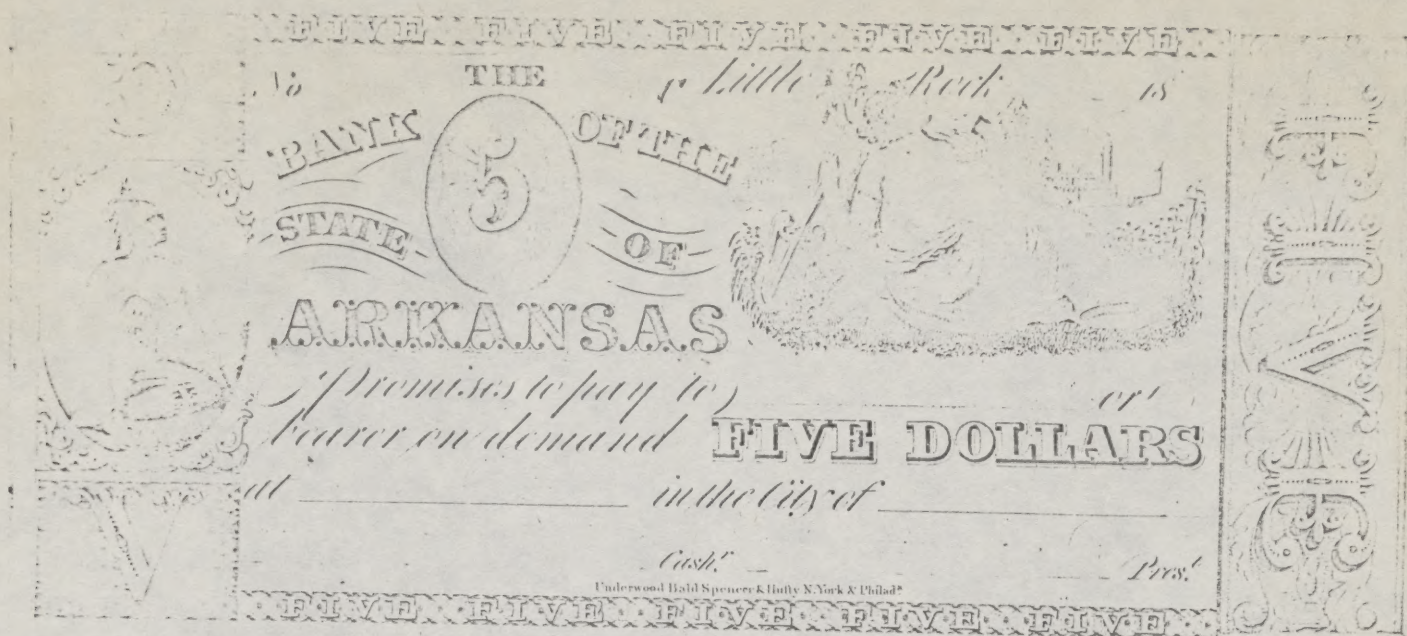 FIVE FIVE FIVE FIVE FIVE
No THE Little Rock 18
BANK 5 OF THE
STATE OF
ARKANSAS
promises to pay to or
bearer on demand FIVE DOLLARS
at in the City of
Cashr. Prest.
Underwood Bald Spencer & Hufty N. York & Philada.
FIVE FIVE FIVE FIVE FIVE
5
V
FIVE